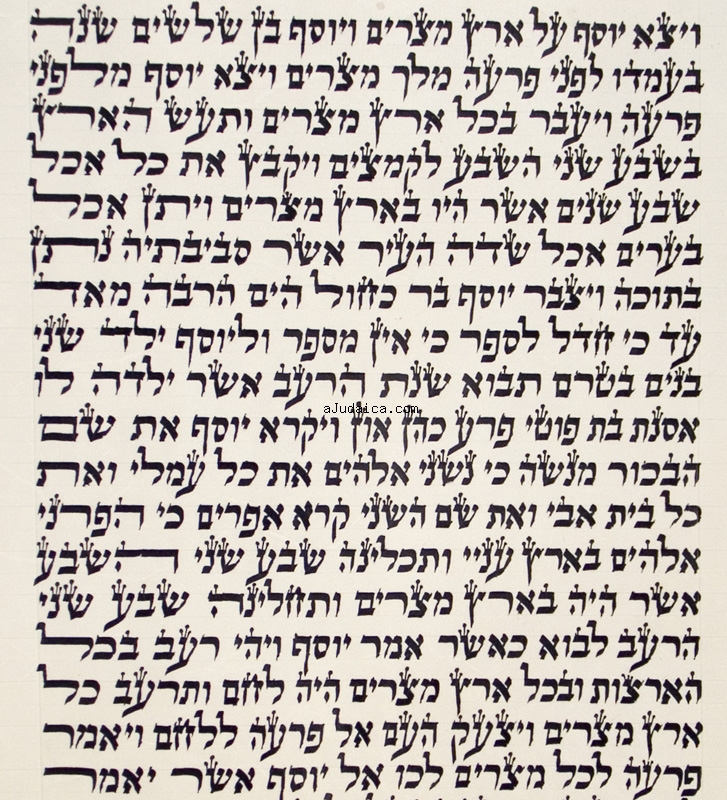 ויצא יוסף על ארץ מצרים ויוסף בן שלשים שנה
בעמדו לפני פרעה מלך מצרים ויצא יוסף מלפני
פרעה ויעבר בכל ארץ מצרים ותעש הארץ
בשבע שני השבע לקמצים ויקבץ את כל אכל
שבע שנים אשר היו בארץ מצרים ויתן אכל
בערים אכל שדה העיר אשר סביבתיה נתן
בתוכה ויצבר יוסף בר כחול הים הרבה מאד
עד כי חדל לספר כי אין מספר וליוסף ילד שני
בנים בטרם תבוא שנת הרעב אשר ילדה לו
aJudaica.com
אסנת בת פוטי פרע כהן און ויקרא יוסף את שם
הבכור מנשה כי נשני אלהים את כל עמלי ואת
כל בית אבי ואת שם השני קרא אפרים כי הפרני
אלהים בארץ עניי ותכלינה שבע שני השבע
אשר היה בארץ מצרים ותחלינה שבע שני
הרעב לבוא כאשר אמר יוסף ויהי רעב בכל
הארצות ובכל ארץ מצרים היה לחם ותרעב כל
ארץ מצרים ויצעק העם אל פרעה ללחם ויאמר
פרעה לכל מצרים לכו אל יוסף אשר יאמר